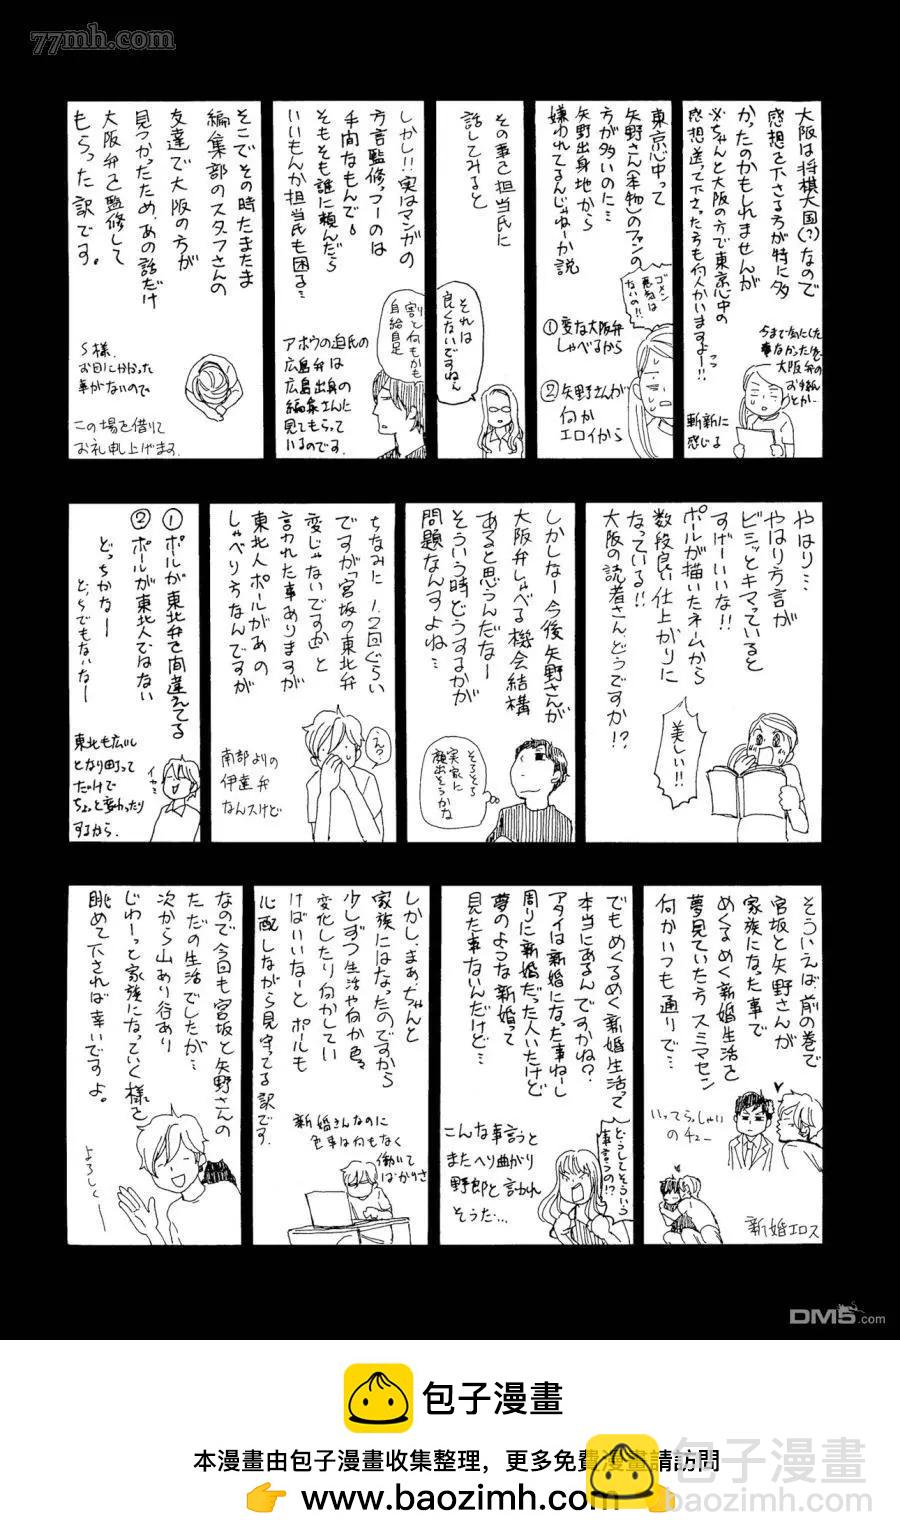 77mh.com
大阪は将棋大国(?)なので
感想を下さる方が特に多
かったのかもしれませんが
※ちゃんと大阪の方で東京心中の
感想送って下さった方も何人かいますよー!!
今まで気にした
事なかったけど
大阪弁の
お手紙
とか…
斬新に
感じる
東京心中って
矢野さん(本物)のファンの
方が多いのに…
矢野出身地から
嫌われてるんじゃねーか説
ゴメン
悪気は
ないの!!
①変な大阪弁
しゃべるから
②矢野さんが
何か
エロイから
その事を担当氏に
話してみると
それは
良くないですねぇ
しかし!!実はマンガの
方言監修っつーのは
手間なもんで
そもそも誰に頼んだら
いいもんか担当氏も困る…
割と何もかも
自給自足
アホウの迫氏の
広島弁は
広島出身の
編集さんに
見てもらって
いるのです。
そこでその時たまたま
編集部のスタッフさんの
友達で大阪の方が
見つかったため、あの話だけ
大阪弁を監修して
もらった訳です。
S様、
お目にかかった
事がないので
この場を借りて
お礼申し上げます。
やはり…
やはり方言が
ビシッとキマっていると
すげーいいな!!
ポールが描いたネームから
数段良い仕上がりに
なっている!!
大阪の読者さん、どうですか!?
美しい!!
しかしなー今後矢野さんが
大阪弁しゃべる機会結構
あると思うんだなー
そういう時どうするかが
問題なんすよね…
そろそろ
実家に
顔出そうかな
ちなみに1、2回ぐらい
ですが「宮坂の東北弁
変じゃないですか」と
言われた事ありますが
東北人ポールがあの
しゃべり方なんですが
えっ?
南部よりの
伊達弁
なんスけど
①ポールが東北弁を間違えてる
②ポールが東北人ではない
どっちかなー
どっちでもないなー
イヤ…
東北も広いし
となり町って
だけで
ちょっと変わったり
するから。
そういえば、前の巻で
宮坂と矢野さんが
家族になった事で
めくるめく新婚生活を
夢見ていた方スミマセン
何かいつも通りで…
いってらっしゃい
のチュー
新婚エロス
でもめくるめく新婚生活って
本当にあるんですかね?
アタイは新婚になった事ねーし
周りに新婚だった人いたけど
夢のような新婚って
見た事ないんだけど…
どうしてそういう
事言うの!?
こんな事言うと
またへり曲がり
野郎と言われ
そうだ…
しかし、まあ、ちゃんと
家族にはなったのですから
少しずつ生活や何か色々
変化したり何かしてい
けばいいなーとポールも
心配しながら見守ってる訳です。
新婚さんなのに
色事は何もなく
働いて
ばかりさ
なので今回も宮坂と矢野さんの
ただの生活でしたが…
次から山あり谷あり
じわーっと家族になっていく様を
眺めて下されば幸いですよ。
よろしくー
DM5.com
包子漫畫
本漫畫由包子漫畫收集整理，更多免費漫畫請訪問
👉 www.baozimh.com
包子漫畫
baozimh.com